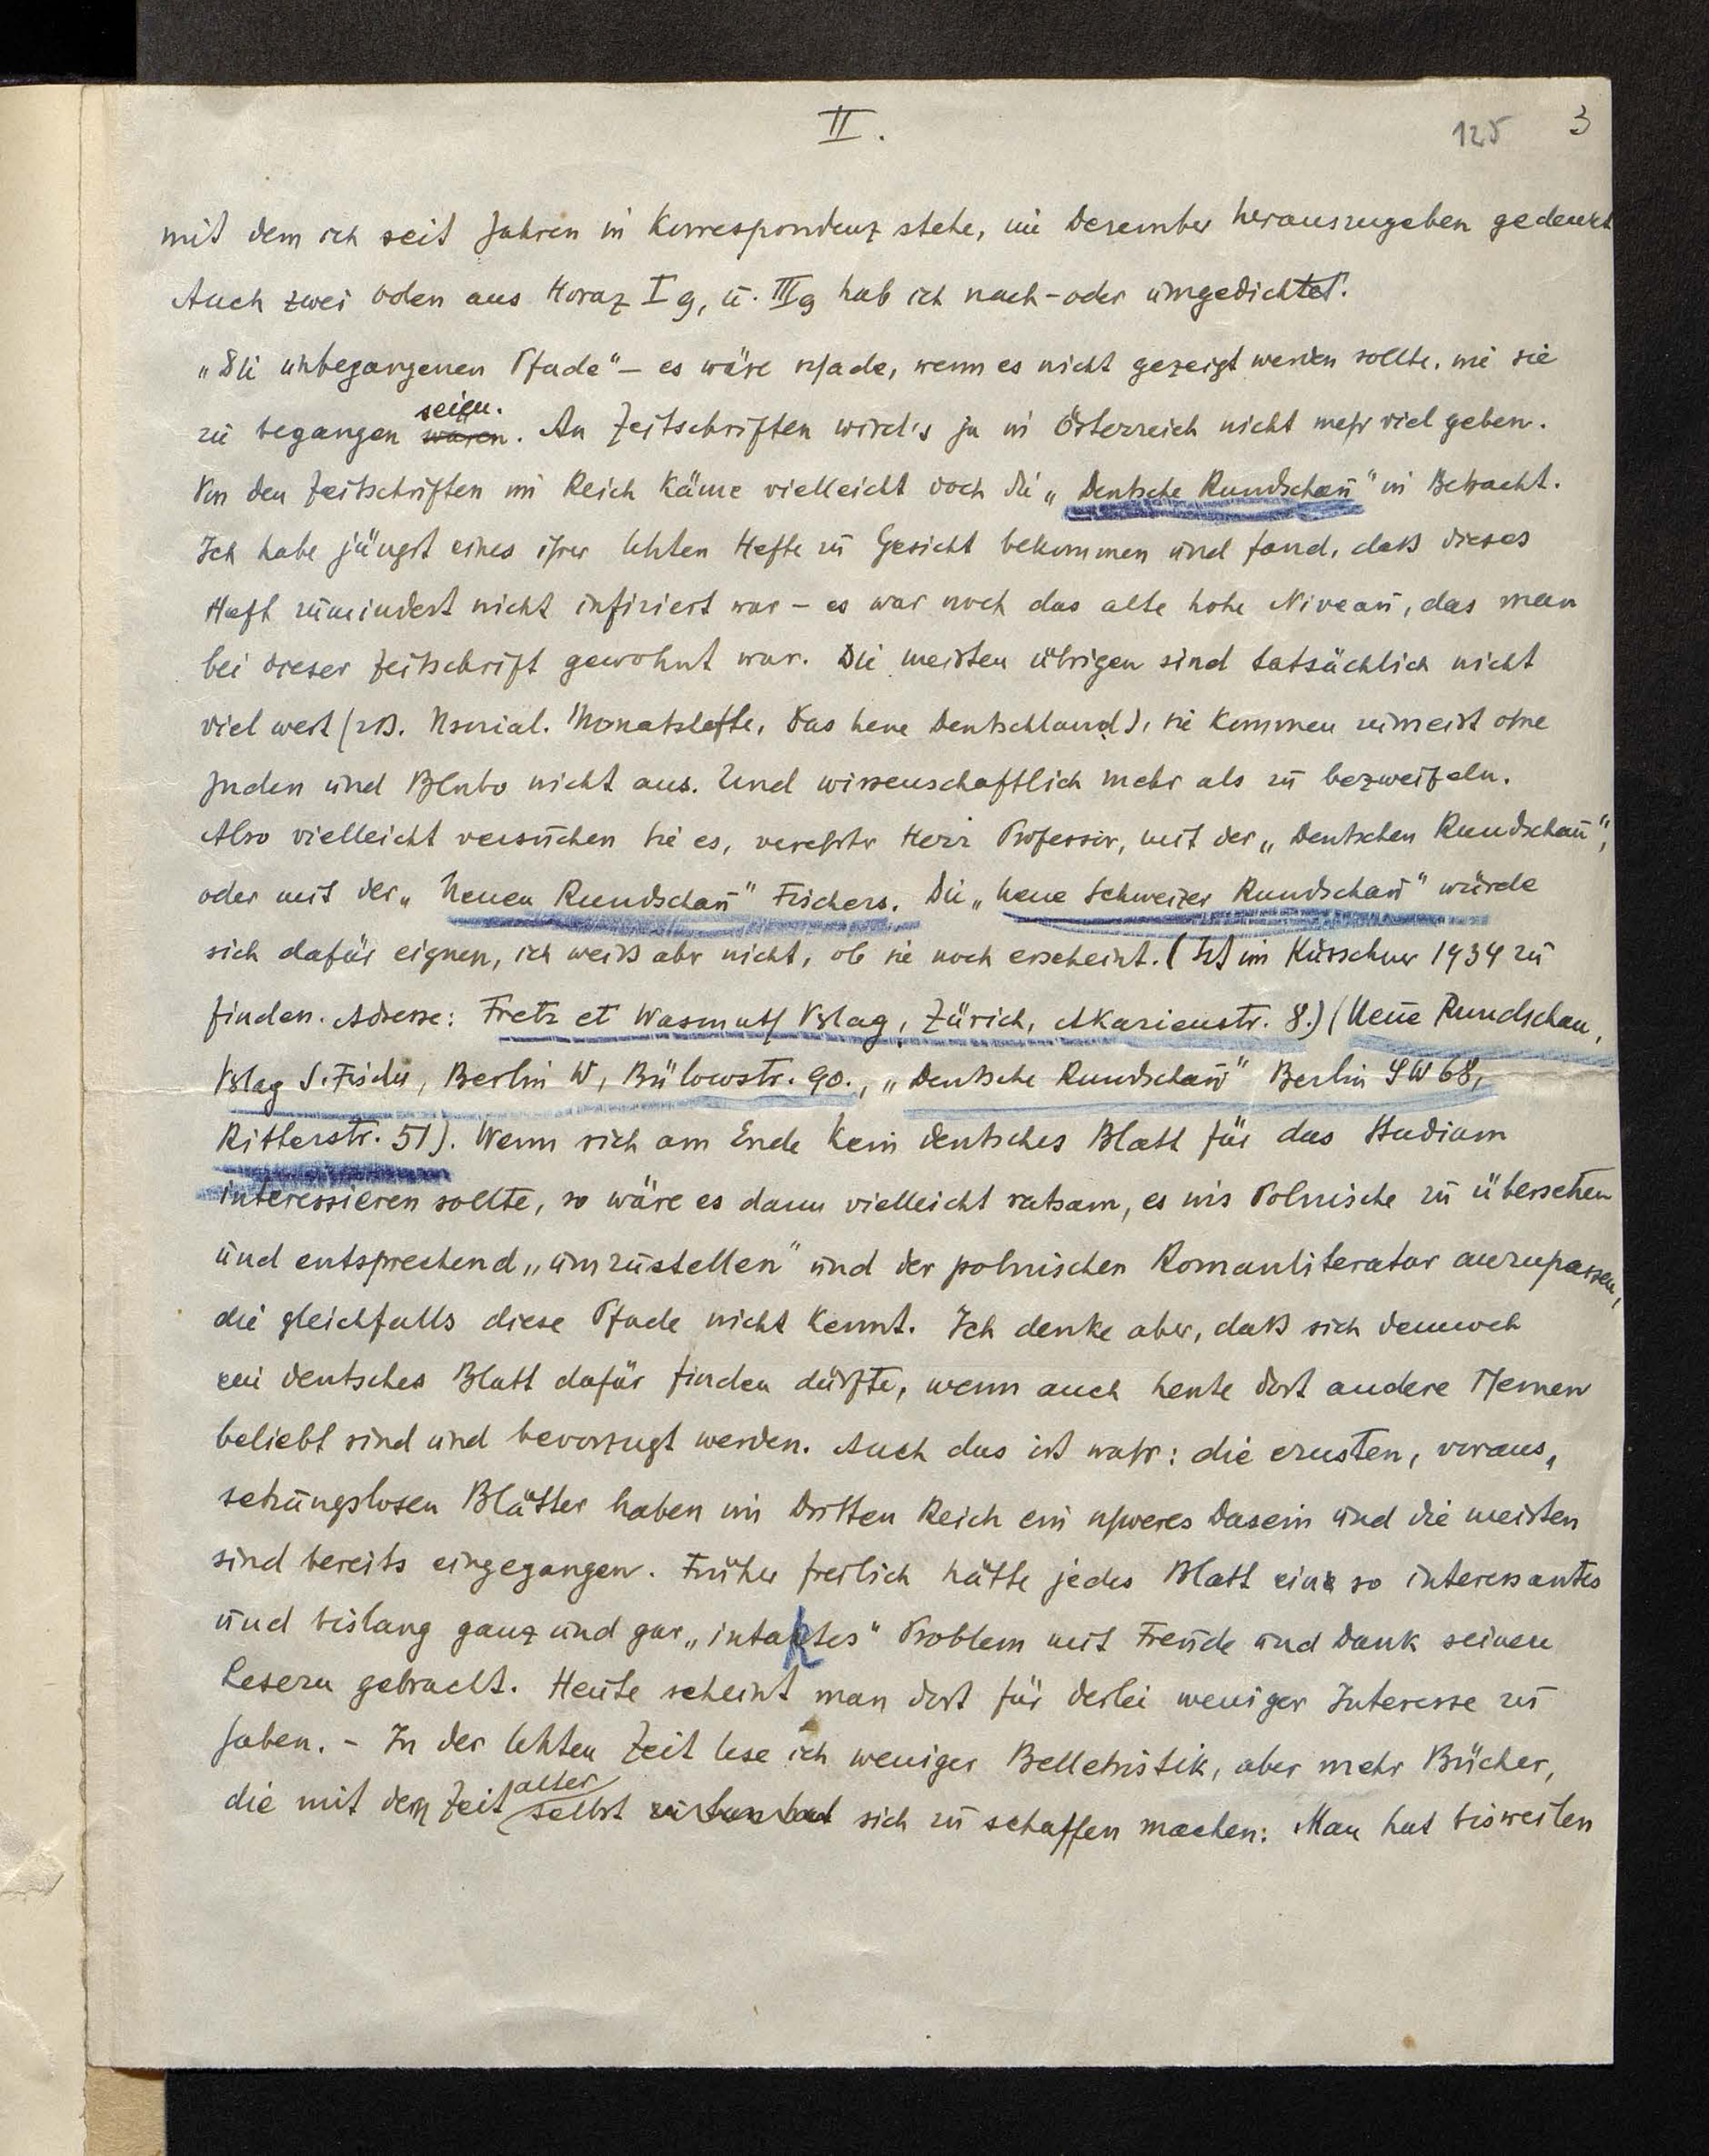 II.
125 3
mit dem ich seit Jahren in Korrespondenz stehe, im Dezember herauszugeben gedenkt
Auch zwei Oden aus Horaz I 9, u. III 9 hab ich nach- oder umgedichtet.
„Die unbegangenen Pfade" – es wäre schade, wenn es nicht gezeigt werden sollte, wie sie
seien.
zu begangen waren. An Zeitschriften wird's ja in Österreich nicht mehr viel geben.
Von den Zeitschriften im Reich käme vielleicht doch die „Deutsche Rundschau" in Betracht.
Ich habe jüngst eines ihrer letzten Hefte zu Gesicht bekommen und fand, daß dieses
Heft zumindest nicht infiziert war – es war noch das alte hohe Niveau, das man
bei dieser Zeitschrift gewohnt war. Die meisten übrigen sind tatsächlich nicht
viel wert (zB. Nsozial. Monatshefte, Das neue Deutschland), sie kommen zumeist ohne
Juden und Blubo nicht aus. Und wissenschaftlich mehr als zu bezweifeln.
Also vielleicht versuchen Sie es, verehrter Herr Professor, mit der „Deutschen Rundschau",
oder mit der „Neuen Rundschau" Fischers. Die „Neue Schweizer Rundschau" würde
sich dafür eignen, ich weiß aber nicht, ob sie noch erscheint. (Ist im Kürschner 1934 zu
finden. Adresse: Fretz et Wasmuth Vlag, Zürich, Akazienstr. 8.) (Neue Rundschau,
Vlag S. Fischer, Berlin W, Bülowstr. 90., „Deutsche Rundschau" Berlin SW 68,
Ritterstr. 51). Wenn sich am Ende kein deutsches Blatt für das Studium
interessieren sollte, so wäre es dann vielleicht ratsam, es ins Polnische zu übersetzen
und entsprechend „umzustellen" und der polnischen Romanliteratur anzupassen,
die gleichfalls diese Pfade nicht kennt. Ich denke aber, daß sich dennoch
ein deutsches Blatt dafür finden dürfte, wenn auch heute dort andere Themen
beliebt sind und bevorzugt werden. Auch das ist wahr: die ernsten, voraus„
setzungslosen Blätter haben im Dritten Reich ein schweres Dasein und die meisten
sind bereits eingegangen. Früher freilich hätte jedes Blatt ein so interessantes
und bislang ganz und gar „intaktes" Problem mit Freude und Dank seinen
Lesern gebracht. Heute scheint man dort für derlei weniger Interesse zu
haben. – In der letzten Zeit lese ich weniger Belletristik, aber mehr Bücher,
alter
die mit dem Zeit selbst sich zu schaffen machen: Man hat bisweilen